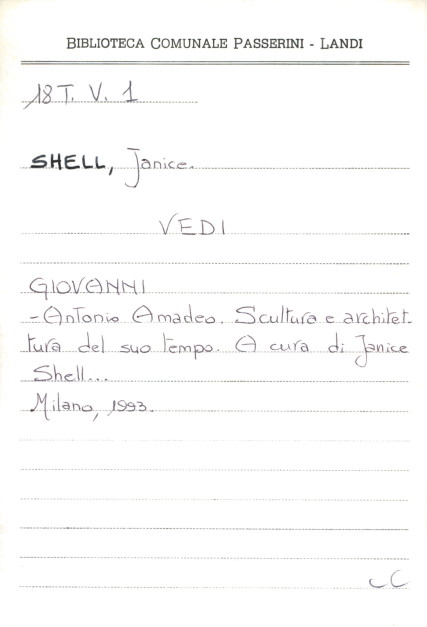 BIBLIOTECA COMUNALE PASSERINI - LANDI
18 T. V. 1
SHELL, Janice.
VEDI
GIOVANNI
- Antonio Amadeo. Scultura e architet-
tura del suo tempo. A cura di Janice
Shell...
Milano, 1993.
CC